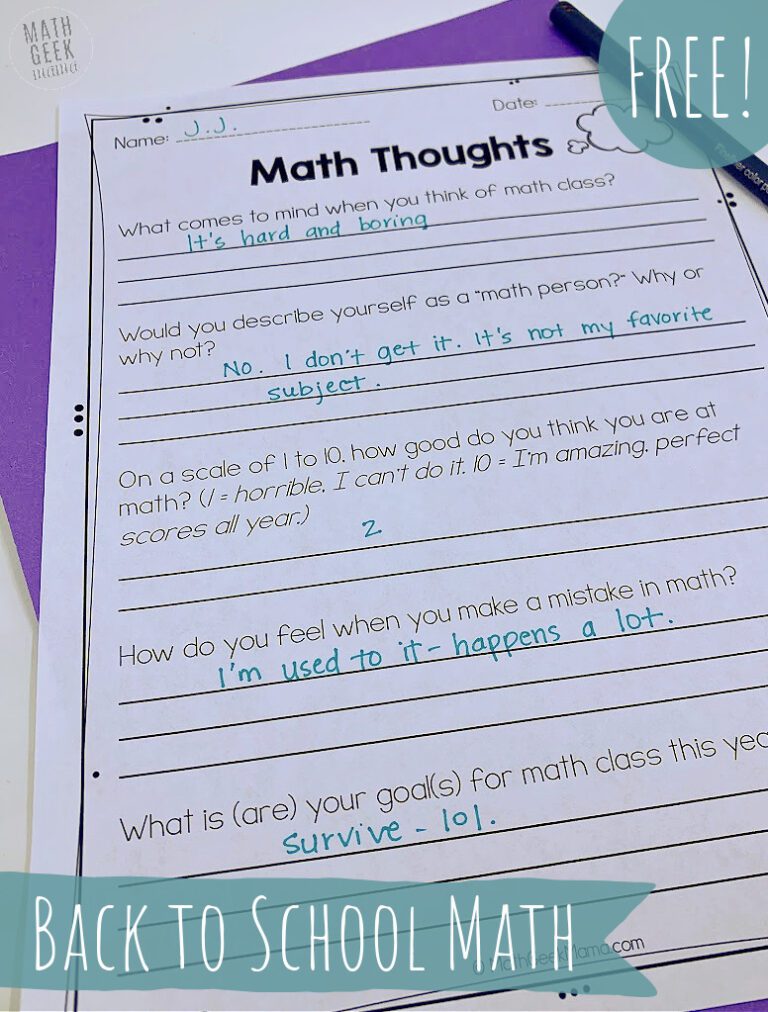 MATH
GEEK
FREE!
Name: J.J.
Date:
Math Thoughts
What comes to mind when you think of math class?
It's hard and boring
Would you describe yourself as a "math person?" Why or
why not?
No. I don't get it. It's not my favorite
subject.
On a scale of 1 to 10, how good do you think you are at
math? (1 = horrible, I can't do it, 10 = I'm amazing, perfect
scores all year.)
2
How do you feel when you make a mistake in math?
I'm used to it - happens a lot.
What is (are) your goal(s) for math class this yea
survive - lol.
© MathGeekMama.com
BACK TO SCHOOL MATH